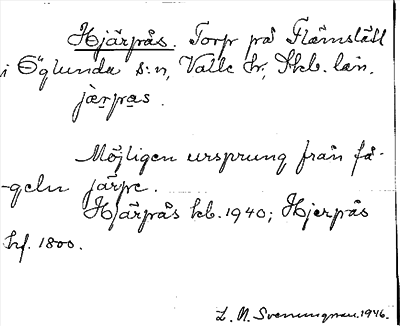 Hjärpås. Torp på Flämslätt
i Öglunda s:n, Valle hr, Skb. län.
jærpas.
Möjligen ursprung från få-
geln järpe.
Hjärpås kb. 1940; Hjerpås
hf. 1800.
L. N. Svenungsson. 1946.